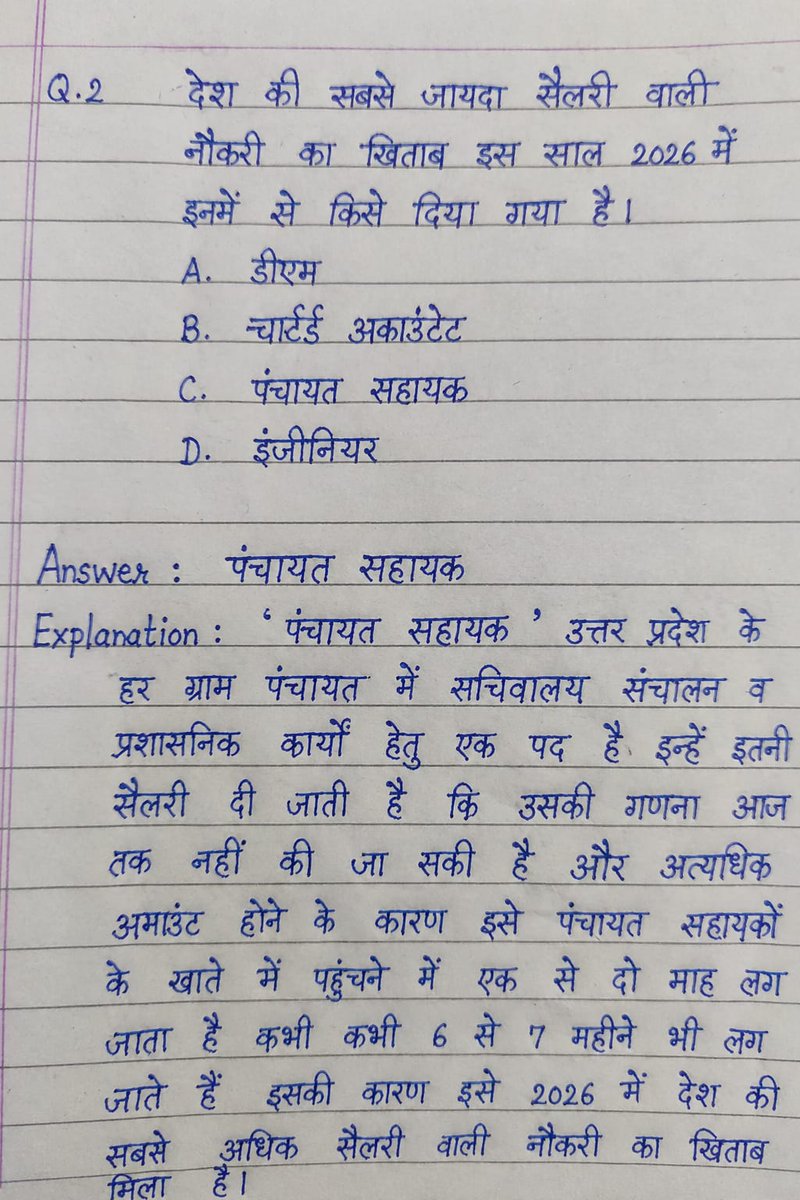 Q.2 देश की सबसे जायदा सैलरी वाली
नौकरी का खिताब इस साल 2026 में
इनमें से किसे दिया गया है।
A. डीएम
B. चार्टर्ड अकाउंटेट
C. पंचायत सहायक
D. इंजीनियर
Answer : पंचायत सहायक
Explanation : ‘ पंचायत सहायक ’ उत्तर प्रदेश के
हर ग्राम पंचायत में सचिवालय संचालन व
प्रशासनिक कार्यों हेतु एक पद है इन्हें इतनी
सैलरी दी जाती है कि उसकी गणना आज
तक नहीं की जा सकी है और अत्यधिक
अमाउंट होने के कारण इसे पंचायत सहायकों
के खाते में पहुंचने में एक से दो माह लग
जाता है कभी कभी 6 से 7 महीने भी लग
जाते हैं इसकी कारण इसे 2026 में देश की
सबसे अधिक सैलरी वाली नौकरी का खिताब
मिला है।